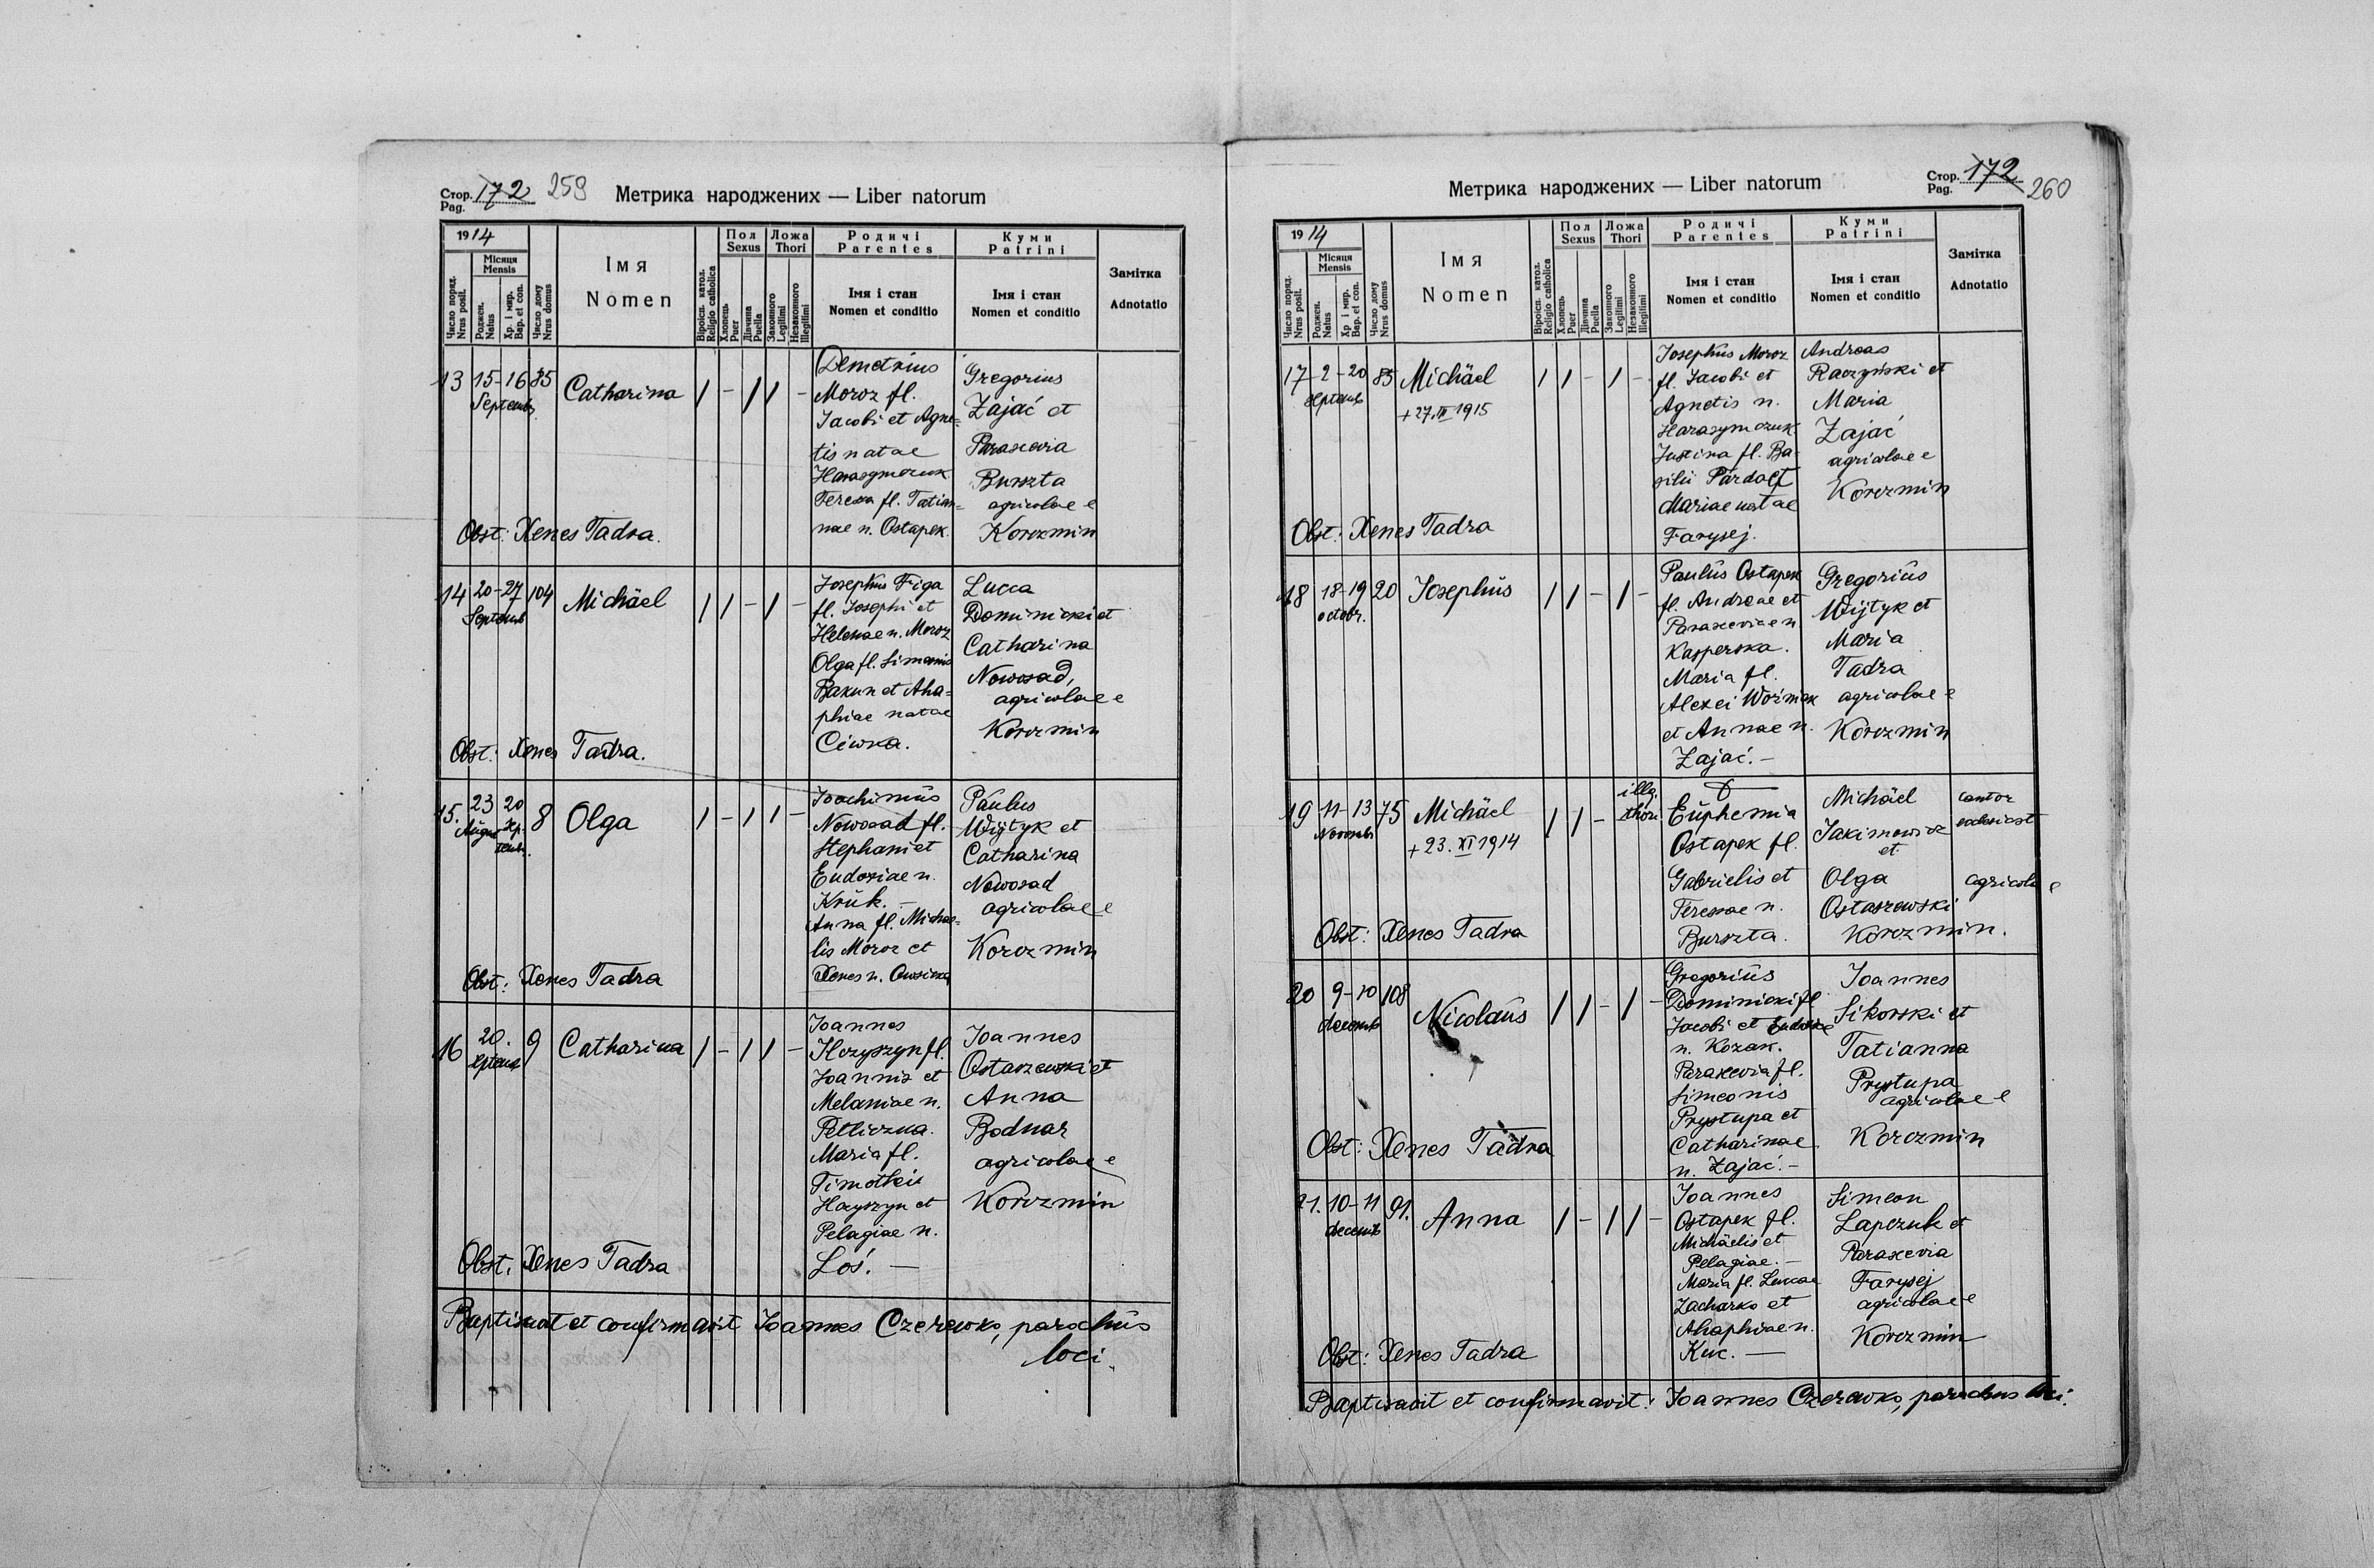 Стор. 172 259
Pag.
Метрика народжених — Liber natorum
1914
Місяця
Mensis
Число поряд.
Nrus posit.
Роджен.
Natus
Хр. і мир.
Bap. et con.
Число дому
Nrus domus
Імя
Nomen
Віроісп. катол.
Religio catholica
Пол
Sexus
Хлопець
Puer
Дівчина
Puella
Ложа
Thori
Законного
Legitimi
Незаконного
Illegitimi
Родичі
Parentes
Імя і стан
Nomen et conditio
Куми
Patrini
Імя і стан
Nomen et conditio
Замітка
Adnotatio
13 15-16 85 Catharina 1 - 1 1 -
Septemb.
Demetrius
Moroz fl.
Jacobi et Agne=
tis natae
Harasymczuk
Teressa fl. Tatian=
nae n. Ostapek.
Gregorius
Zajać et
Parascevia
Burszta
agricolae e
Korczmin
Obst: Xenes Tadra.
14 20-27 104 Michäel 1 1 - 1 -
Septemb
Josephus Figa
fl. Josephi et
Helenae n. Moroz
Olga fl. Simeonis
Bakun et Aha=
phiae natae
Ciwka.
Lucca
Dominicki et
Catharina
Nowosad,
agricolae e
Korczmin
Obst: Xenes Tadra.
15. 23 20 8 Olga 1 - 1 1 -
August Sep-
temb.
Joachimus
Nowosad fl.
Stephani et
Eudosiae n.
Kruk. —
Anna fl. Michae=
lis Moroz et
Xenes n.
Paulus
Wijtyk et
Catharina
Nowosad
agricolae e
Korczmin
Obst: Xenes Tadra
16 20. 9 Catharina 1 - 1 1 -
Septemb
Joannes
Hryszyn fl.
Joannis et
Melaniae n.
Petliczna.
Maria fl.
Timothei
Hryszyn et
Pelagiae n.
Łoś. —
Joannes
Ostaszewski et
Anna
Bodnar
agricolae e
Korczmin
Obst. Xenes Tadra
Baptisavit et confirmavit Joannes Czerewko, parochus
loci.
Метрика народжених — Liber natorum
Стор. 172
Pag. 260
1914
Місяця
Mensis
Число поряд.
Nrus posit.
Роджен.
Natus
Хр. і мир.
Bap. et con.
Число дому
Nrus domus
Імя
Nomen
Віроісп. катол.
Religio catholica
Пол
Sexus
Хлопець
Puer
Дівчина
Puella
Ложа
Thori
Законного
Legitimi
Незаконного
Illegitimi
Родичі
Parentes
Імя і стан
Nomen et conditio
Куми
Patrini
Імя і стан
Nomen et conditio
Замітка
Adnotatio
17 2-20 85 Michäel 1 1 - 1 -
Septemb
+ 27. 1915
Josephus Moroz
fl. Jacobi et
Agnetis n.
Harasymczuk.
Justina fl. Ba-
silii Parda et
Mariae natae
Farysej.
Andreas
Raczyński et
Maria
Zając
agricolae e
Korczmin
Obst: Xenes Tadra
18 18-19 20 Josephus 1 1 - 1 -
octobr.
Paulus Ostapek
fl. Andreae et
Parasceviae n
Kasperska.
Maria fl.
Alexei Woźniak
et Annae n.
Zajać. —
Gregorius
Wijtyk et
Maria
Tadra
agricolae e
Korczmin
19 11-13 75 Michäel 1 1 - illg.
thori
Novemb.
+ 23. XI 1914
Euphemia
Ostapek fl.
Gabrielis et
Teressae n.
Burszta.
Michäel
Jakimowicz
et
Olga
Ostaszewski
Korczmin.
cantor
ecclesiast
agricolae
Obst: Xenes Tadra
20 9-10 108 Nicolaus 1 1 - 1 -
decemb
Gregorius
Dominicki fl
Jacobi et
n. Kozak.
Parascevia fl.
Simeonis
Prystupa et
Catharinae
n. Zajać. —
Joannes
Sikorski et
Tatianna
Prystupa
agricolae e
Korczmin
Obst: Xenes Tadra
21. 10-11 91. Anna 1 - 1 1 -
decemb
Joannes
Ostapek fl.
Michäelis et
Pelagiae. —
Maria fl. Luccae
Zacharko et
Ahaphiae n.
Kuc. —
Simeon
Lapczuk et
Parascevia
Farysej
agricolae e
Korczmin
Obst: Xenes Tadra
Baptisavit et confirmavit: Joannes Czerewko, parochus loci.